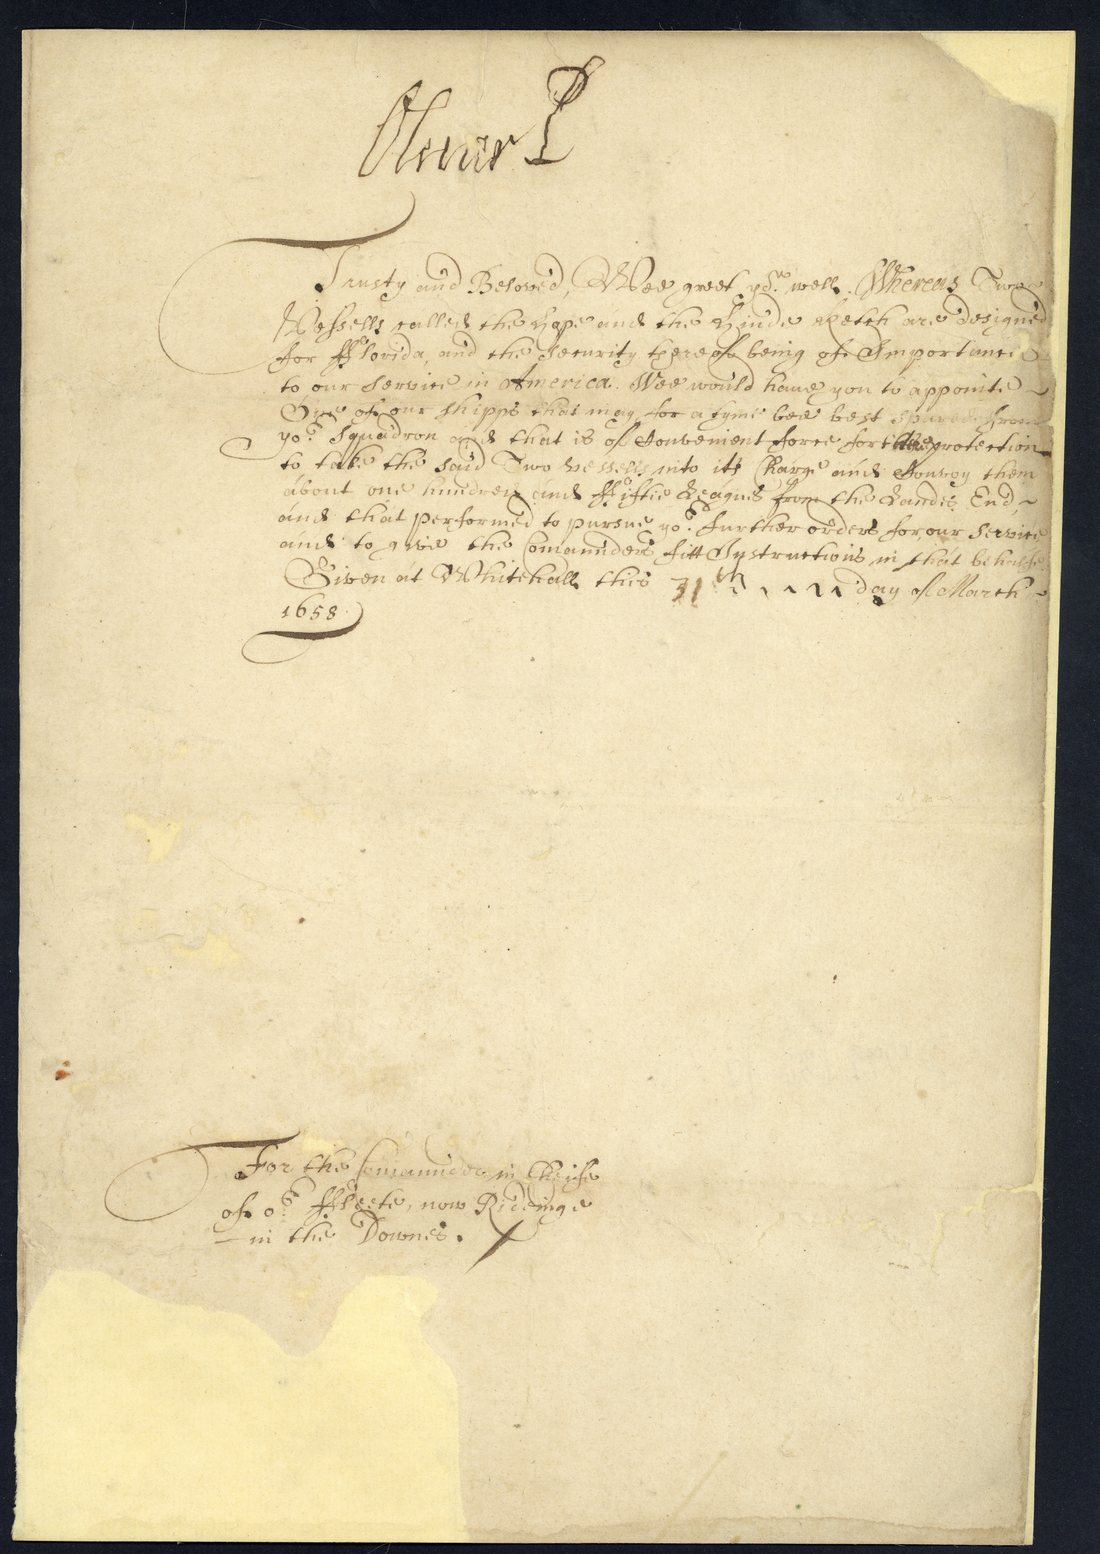 Oliver P
Trusty and Beloved, Wee greet yo.u well. Whereas Two
Vessells called the Hope and the Hinde Ketch are designed
for Fflorida, and the security thereof being of Importance
to our service in America. Wee would have you to appointe
One of our shipps that may for a tyme bee best spared from
yo.r Squadron and that is of Convenient force for the protection
to take the said Two vessells into its Charge and Convoy them
about one hundred and Ffiftie Leagues from the Lands End,
and that performed to pursue yo.r further orders for our service
and to give the Comaunders fitt Instructions in that behalfe
Given at Whitehall this 31th day of March
1658
For the Comaunder in Cheife
of o.r Ffleete, now Rideinge
in the Downes.